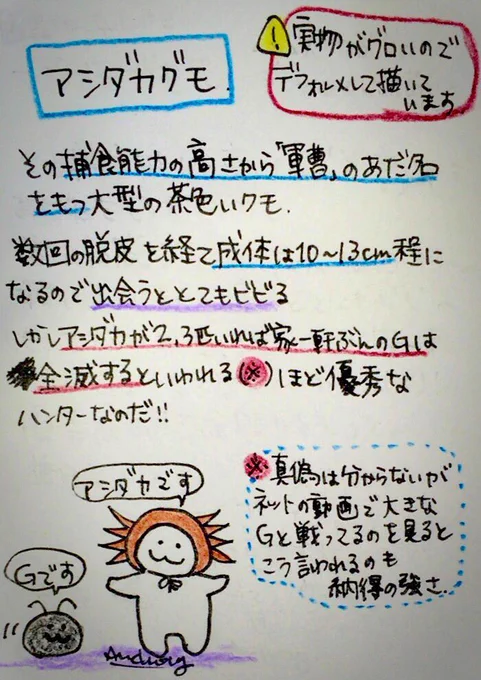 アシダカグモ.
！実物がグロいので
デフォルメして描いて
います
その捕食能力の高さから「軍曹」のあだ名
をもつ大型の茶色いクモ.
数回の脱皮を経て成体は10〜13cm程に
なるので出会うととてもビビる
しかしアシダカが2,3匹いれば家一軒ぶんのGは
全滅するといわれる(※)ほど優秀な
ハンターなのだ!!
※真偽は分からないが
ネットの動画で大きな
Gと戦ってるのを見ると
こう言われるのも
納得の強さ.
アシダカです
Gです